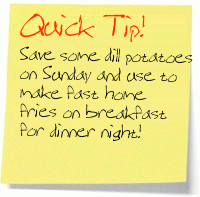 Quick Tip!
Save some dill potatoes
on Sunday and use to
make fast home
fries on breakfast
for dinner night!